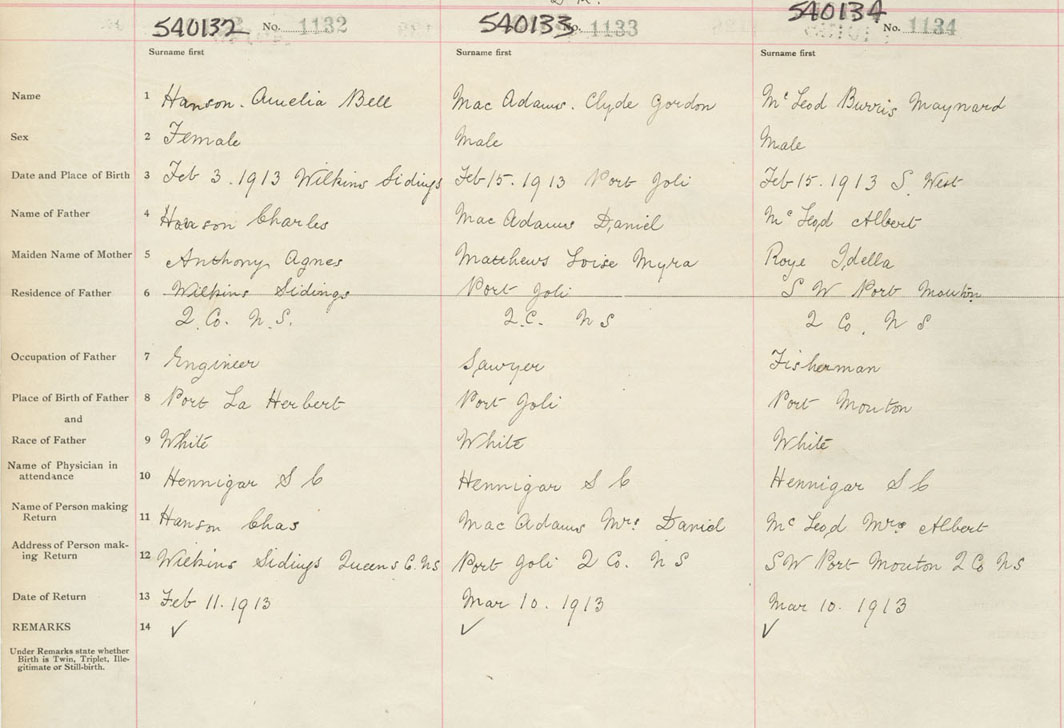 540132 No. 1132 540133 No. 1133 540134 No. 1134
Surname first Surname first Surname first
Name 1 Hanson. Amelia Bell Mac Adams. Clyde Gordon McLeod Burris Maynard
Sex 2 Female Male Male
Date and Place of Birth 3 Feb 3. 1913 Wilkins Sidings Feb 15. 1913 Port Joli Feb 15. 1913 S. West
Name of Father 4 Hanson Charles Mac Adams Daniel McLeod Albert
Maiden Name of Mother 5 Anthony Agnes Matthews Loise Myra Roye Idella
Residence of Father 6 Wilkins Sidings Port Joli S W Port Mouton
Q. Co. N.S. Q.C. N S Q Co. N S
Occupation of Father 7 Engineer Sawyer Fisherman
Place of Birth of Father 8 Port La Herbert Port Joli Port Mouton
and
Race of Father 9 White White White
Name of Physician in
attendance 10 Hennigar S C Hennigar S C Hennigar S C
Name of Person making
Return 11 Hanson Chas Mac Adams Mrs. Daniel McLeod Mrs Albert
Address of Person mak-
ing Return 12 Wilkins Sidings Queens C. NS Port Joli Q Co. N S SW Port Mouton Q Co NS
Date of Return 13 Feb 11. 1913 Mar 10. 1913 Mar 10. 1913
REMARKS 14 ✓ ✓ ✓
Under Remarks state whether
Birth is Twin, Triplet, Ille-
gitimate or Still-birth.